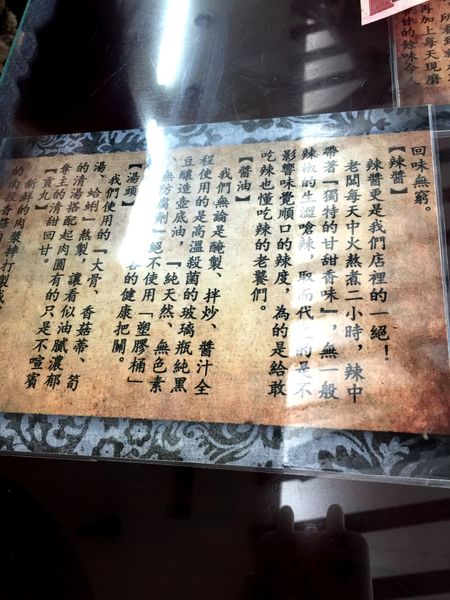 再加上每天現磨
甘的餘味令人
回味無窮。
【辣醬】
辣醬更是我們店裡的一絕！
老闆每天中火熬煮二小時，辣中
帶著『獨特的甘甜香味』，無一般
辣椒的生澀嗆辣，取而代之的是不
影響味覺順口的辣度，為的是給敢
吃辣也懂吃辣的老饕們。
【醬油】
我們無論是醃製、拌炒、醬汁全
程使用的是高溫殺菌的玻璃瓶純黑
豆釀造壺底油，『純天然、無色素
、無防腐劑』絕不使用「塑膠桶」
客的健康把關。
【湯頭】
我們使用的『大骨、香菇蒂、筍
湯、蛤蜊』熬製，讓看似油膩濃郁
的清湯搭配起肉圓有的只是不喧賓
奪主的清甜回甘。
【貢丸】
新鮮的肉漿摔打製成